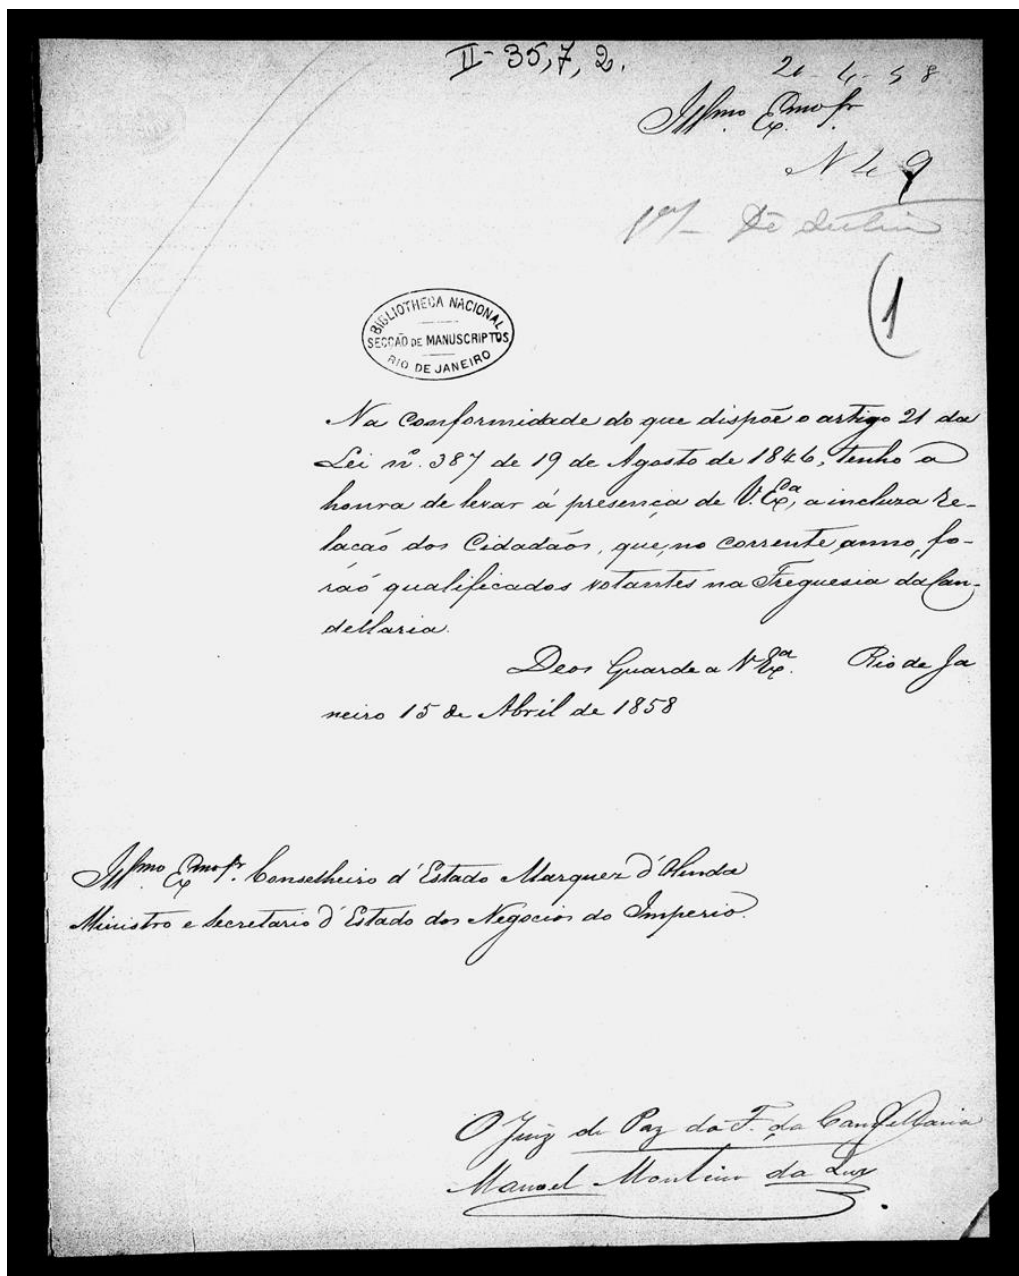 II-35,7,2.
21-4-58
Illmo Exmo Sr
N 49
(1
BIBLIOTHECA NACIONAL
SECCÃO DE MANUSCRIPTOS
RIO DE JANEIRO
Na conformidade do que dispõe o artigo 21 da
Lei nº. 387 de 19 de Agosto de 1846, tenho a
honra de levar á presença de V. Exª, a incluza re-
lacaõ dos Cidadãos, que, no corrente anno, fo-
raõ qualificados votantes na Freguesia da Can-
dellaria.
Deos Guarde a V Exª. Rio de Ja
neiro 15 de Abril de 1858
Illmo Exmo Sr. Conselheiro d'Estado Marquez d'Olinda
Ministro e Secretario d'Estado dos Negocios do Imperio.
O Juiz de Paz da F. da Candellaria
Manoel Monteiro da Luz